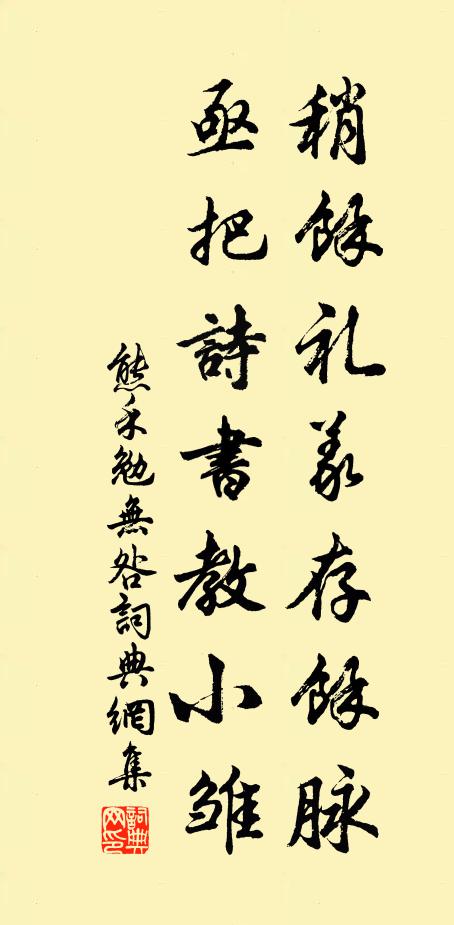 稍餘礼義存餘脉
亟把詩書教小雛
熊禾勉無咎詞典網集
詞典網印